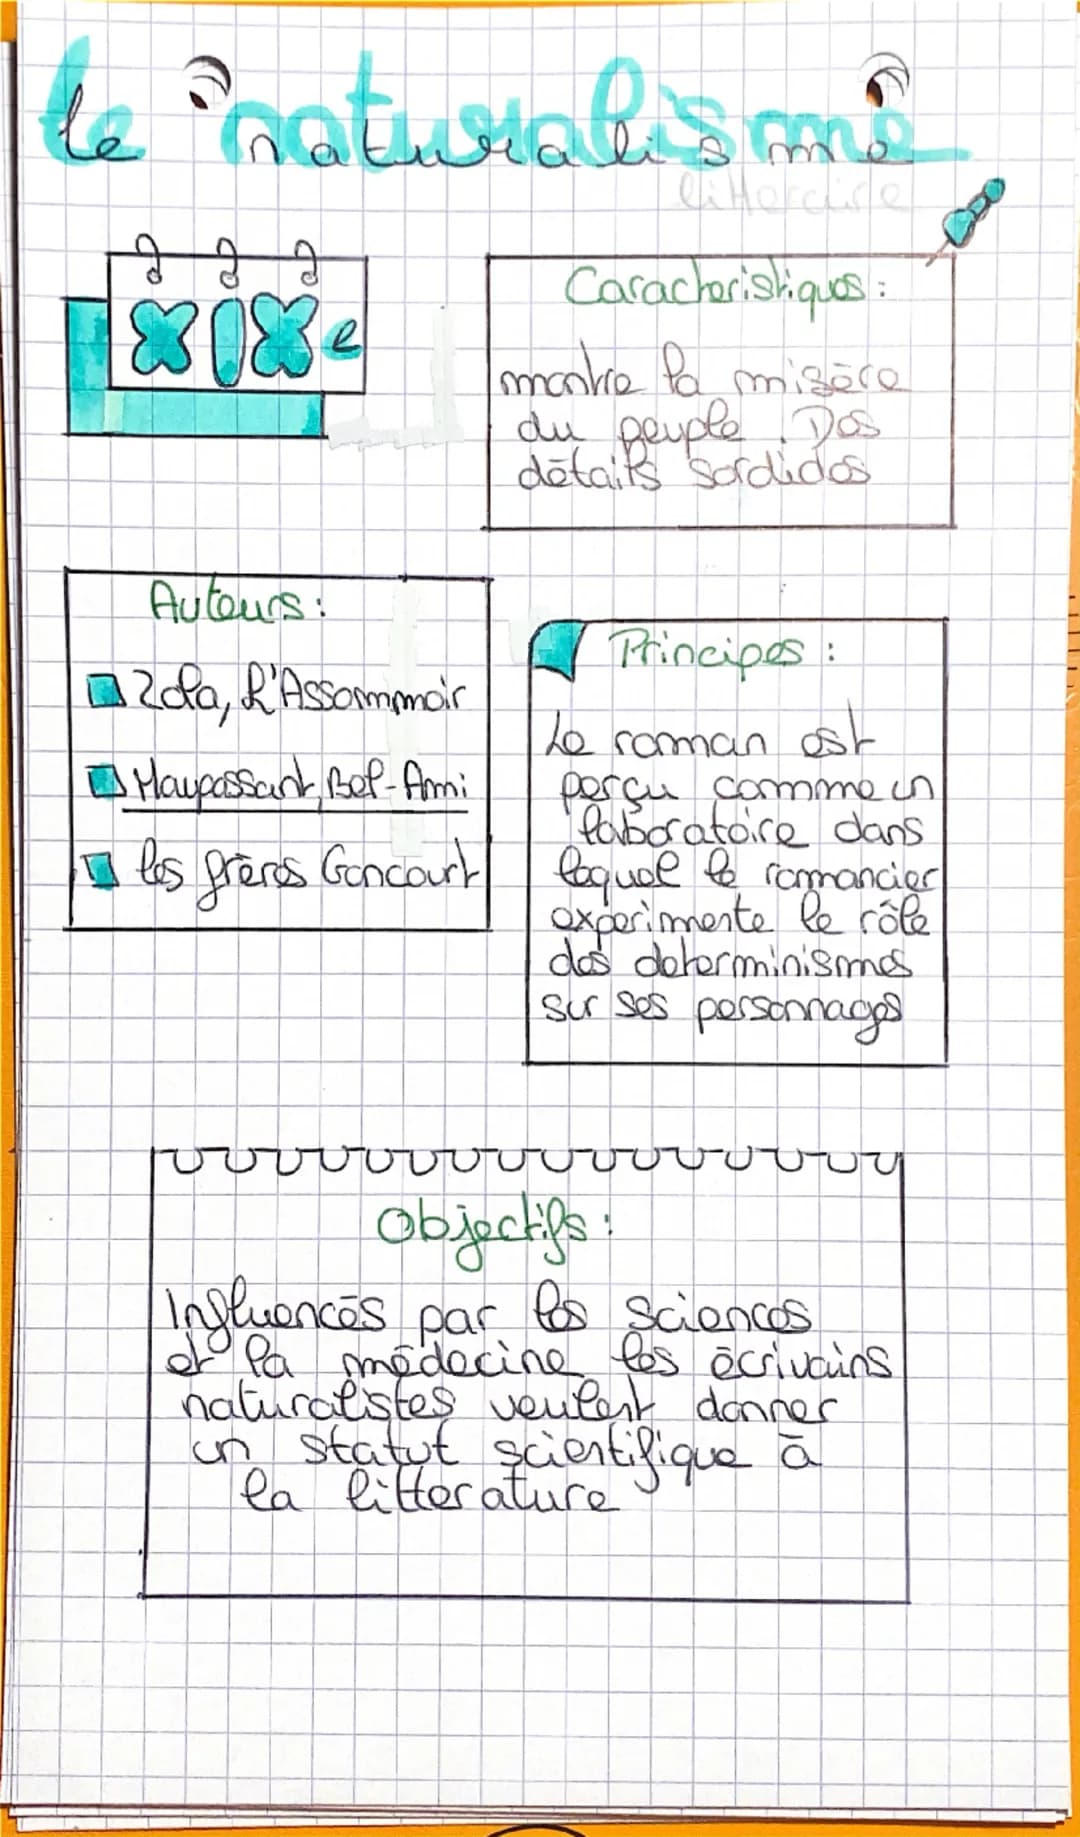 le naturalisme
litteraire
XIXe
Caracteristiques :
montre la misère
du peuple. Des
détails sordides
Auteurs :
Zola, L'Assommoir
Maupassant, Bel-Ami
les frères Goncourt
Principes :
Le roman est
perçu comme un
laboratoire dans
lequel le romancier
experimente le rôle
des determinismes
sur ses personnages
Objectifs :
Influencés par les sciences
et la médecine les écrivains
naturalistes veulent donner
un statut scientifique à
la litterature